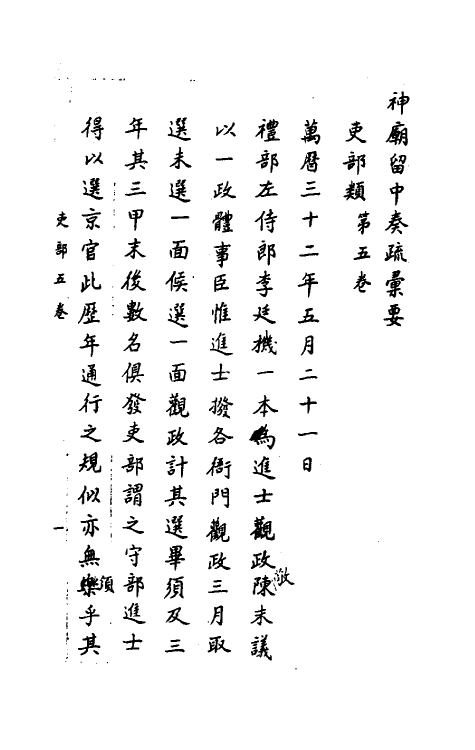 神廟留中奏疏彙要
吏部類第五卷
萬曆三十二年五月二十一日
禮部左侍郎李廷機一本為進士觀政陳末議
以一政體事臣惟進士撥各衙門觀政三月取
選未選一面候選一面觀政計其選畢須及三
年其三甲末後數名俱發吏部謂之守部進士
得以選京官此歷年通行之規似亦無須樂乎其
吏部五卷 一